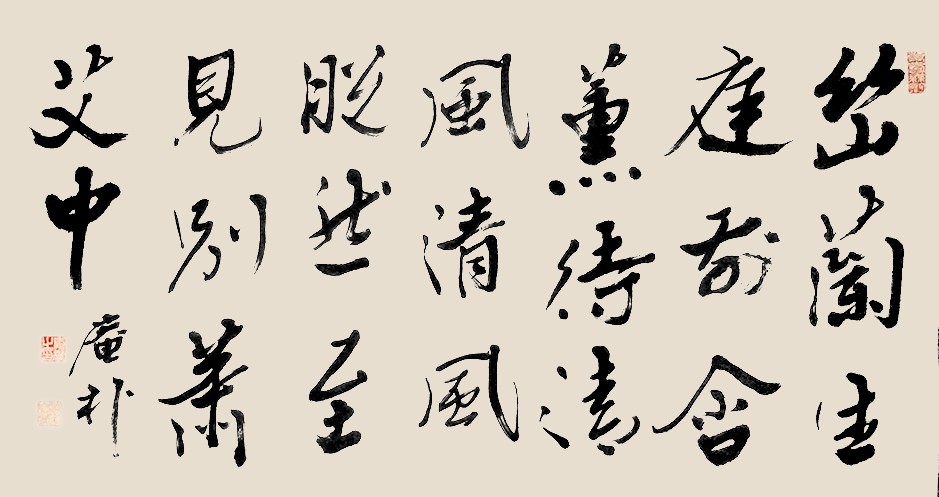 幽蘭生
庭前含
薰待清
風清風
脫然至
見別蕭
艾中
庵朴